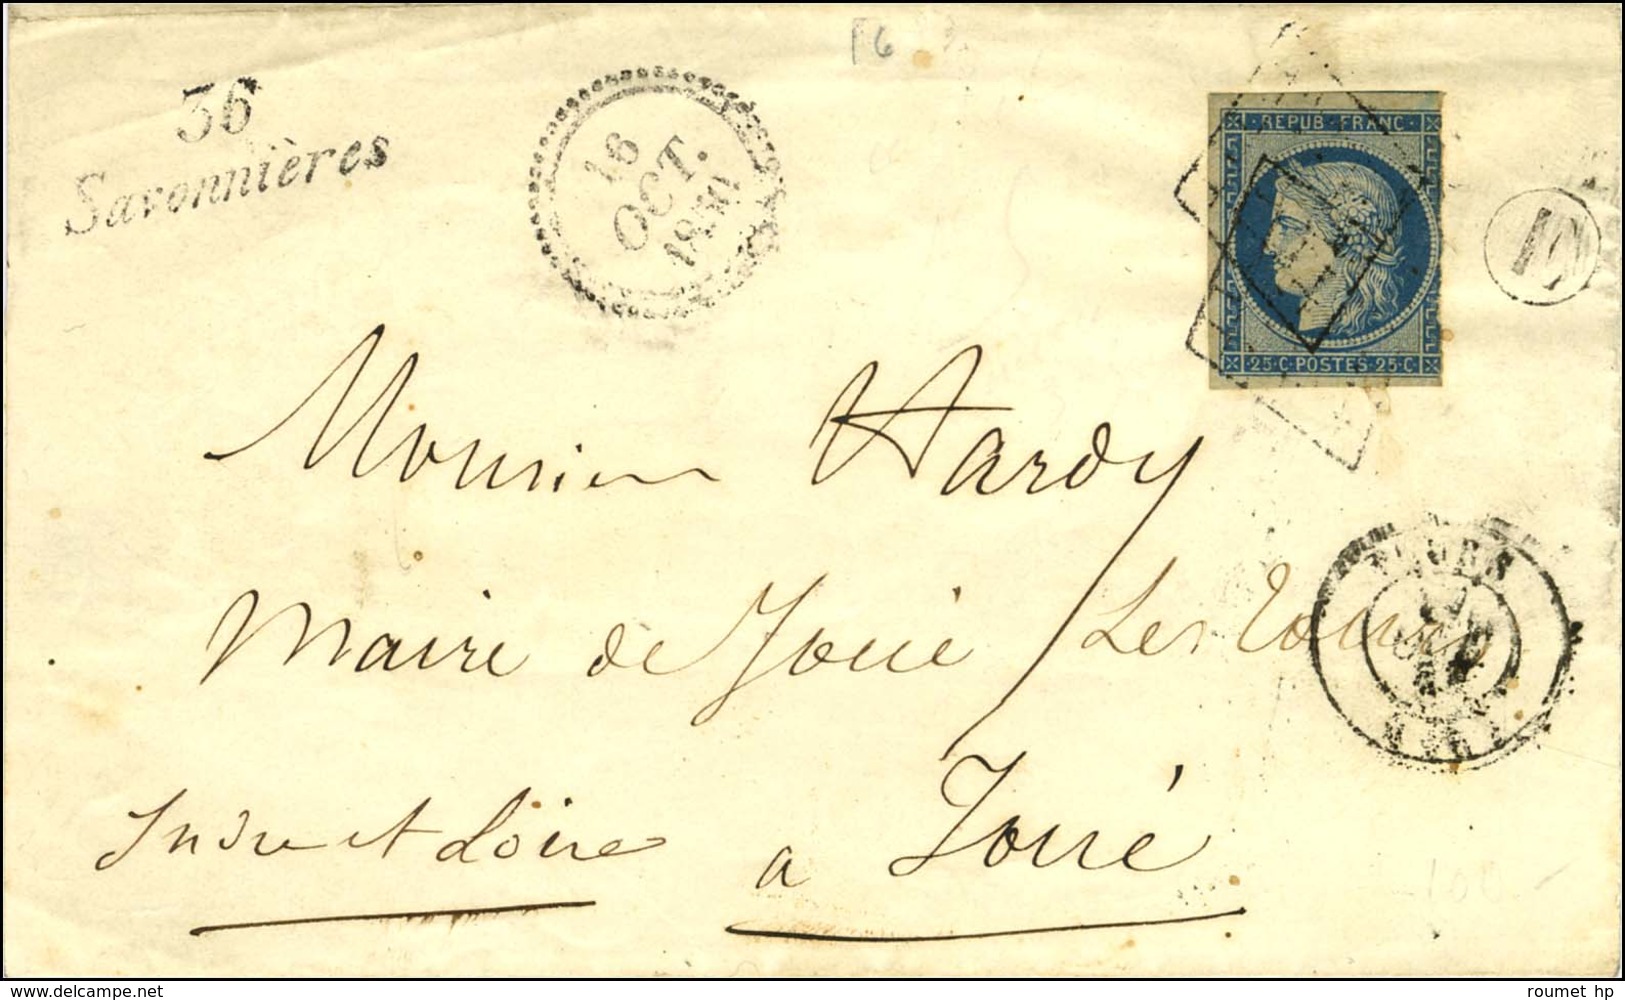 36
Savonnières
16
OCT.
1850
REPUB FRANC
25 C POSTES 25 C
Monsieur Hardy
Maire de Joué Les Tours
Indre et Loire
a Joué
TOURS
100
delcampe.net
roumet hp